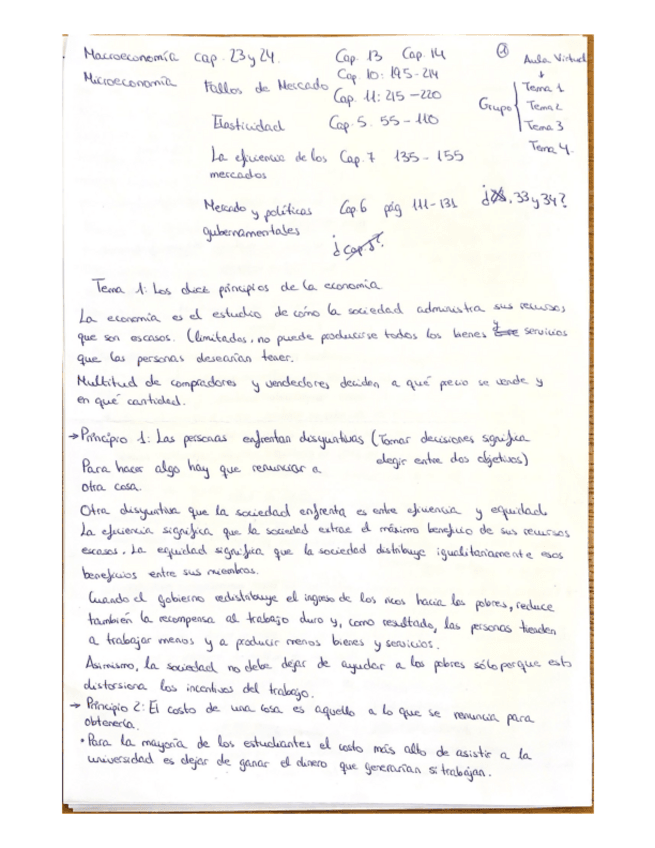 Macroeconomía cap. 23 y 24. Cap. 13 Cap. 14
Microeconomía Fallos de Mercado Cap. 10: 195-214
Cap. 11: 215-220
Aula Virtual
Grupo Tema 1
Tema 2
Tema 3
Tema 4.
Elasticidad Cap. 5. 55-110
La eficiencia de los Cap. 7 135-155
mercados
Mercado y políticas Cap 6 pág 111-131 33 y 34?
gubernamentales
¿cap 5?
Tema 1: Los diez principios de la economía
La economía es el estudio de cómo la sociedad administra sus recursos
que son escasos. (limitados, no puede producirse todos los bienes y servicios
que las personas desearían tener.
Multitud de compradores y vendedores deciden a qué precio se vende y
en qué cantidad.
→ Principio 1: Las personas enfrentan disyuntivas (Tomar decisiones significa
elegir entre dos objetivos)
Para hacer algo hay que renunciar a
otra cosa.
Otra disyuntiva que la sociedad enfrenta es entre eficiencia y equidad.
La eficiencia significa que la sociedad extrae el máximo beneficio de sus recursos
escasos. La equidad significa que la sociedad distribuye igualitariamente esos
beneficios entre sus miembros.
Cuando el gobierno redistribuye el ingreso de los ricos hacia los pobres, reduce
también la recompensa al trabajo duro y, como resultado, las personas tienden
a trabajar menos y a producir menos bienes y servicios.
Asimismo, la sociedad no debe dejar de ayudar a los pobres sólo porque esto
distorsiona los incentivos del trabajo.
→ Principio 2: El costo de una cosa es aquello a lo que se renuncia para
obtenerla.
• Para la mayoría de los estudiantes el costo más alto de asistir a la
universidad es dejar de ganar el dinero que generarían si trabajan.